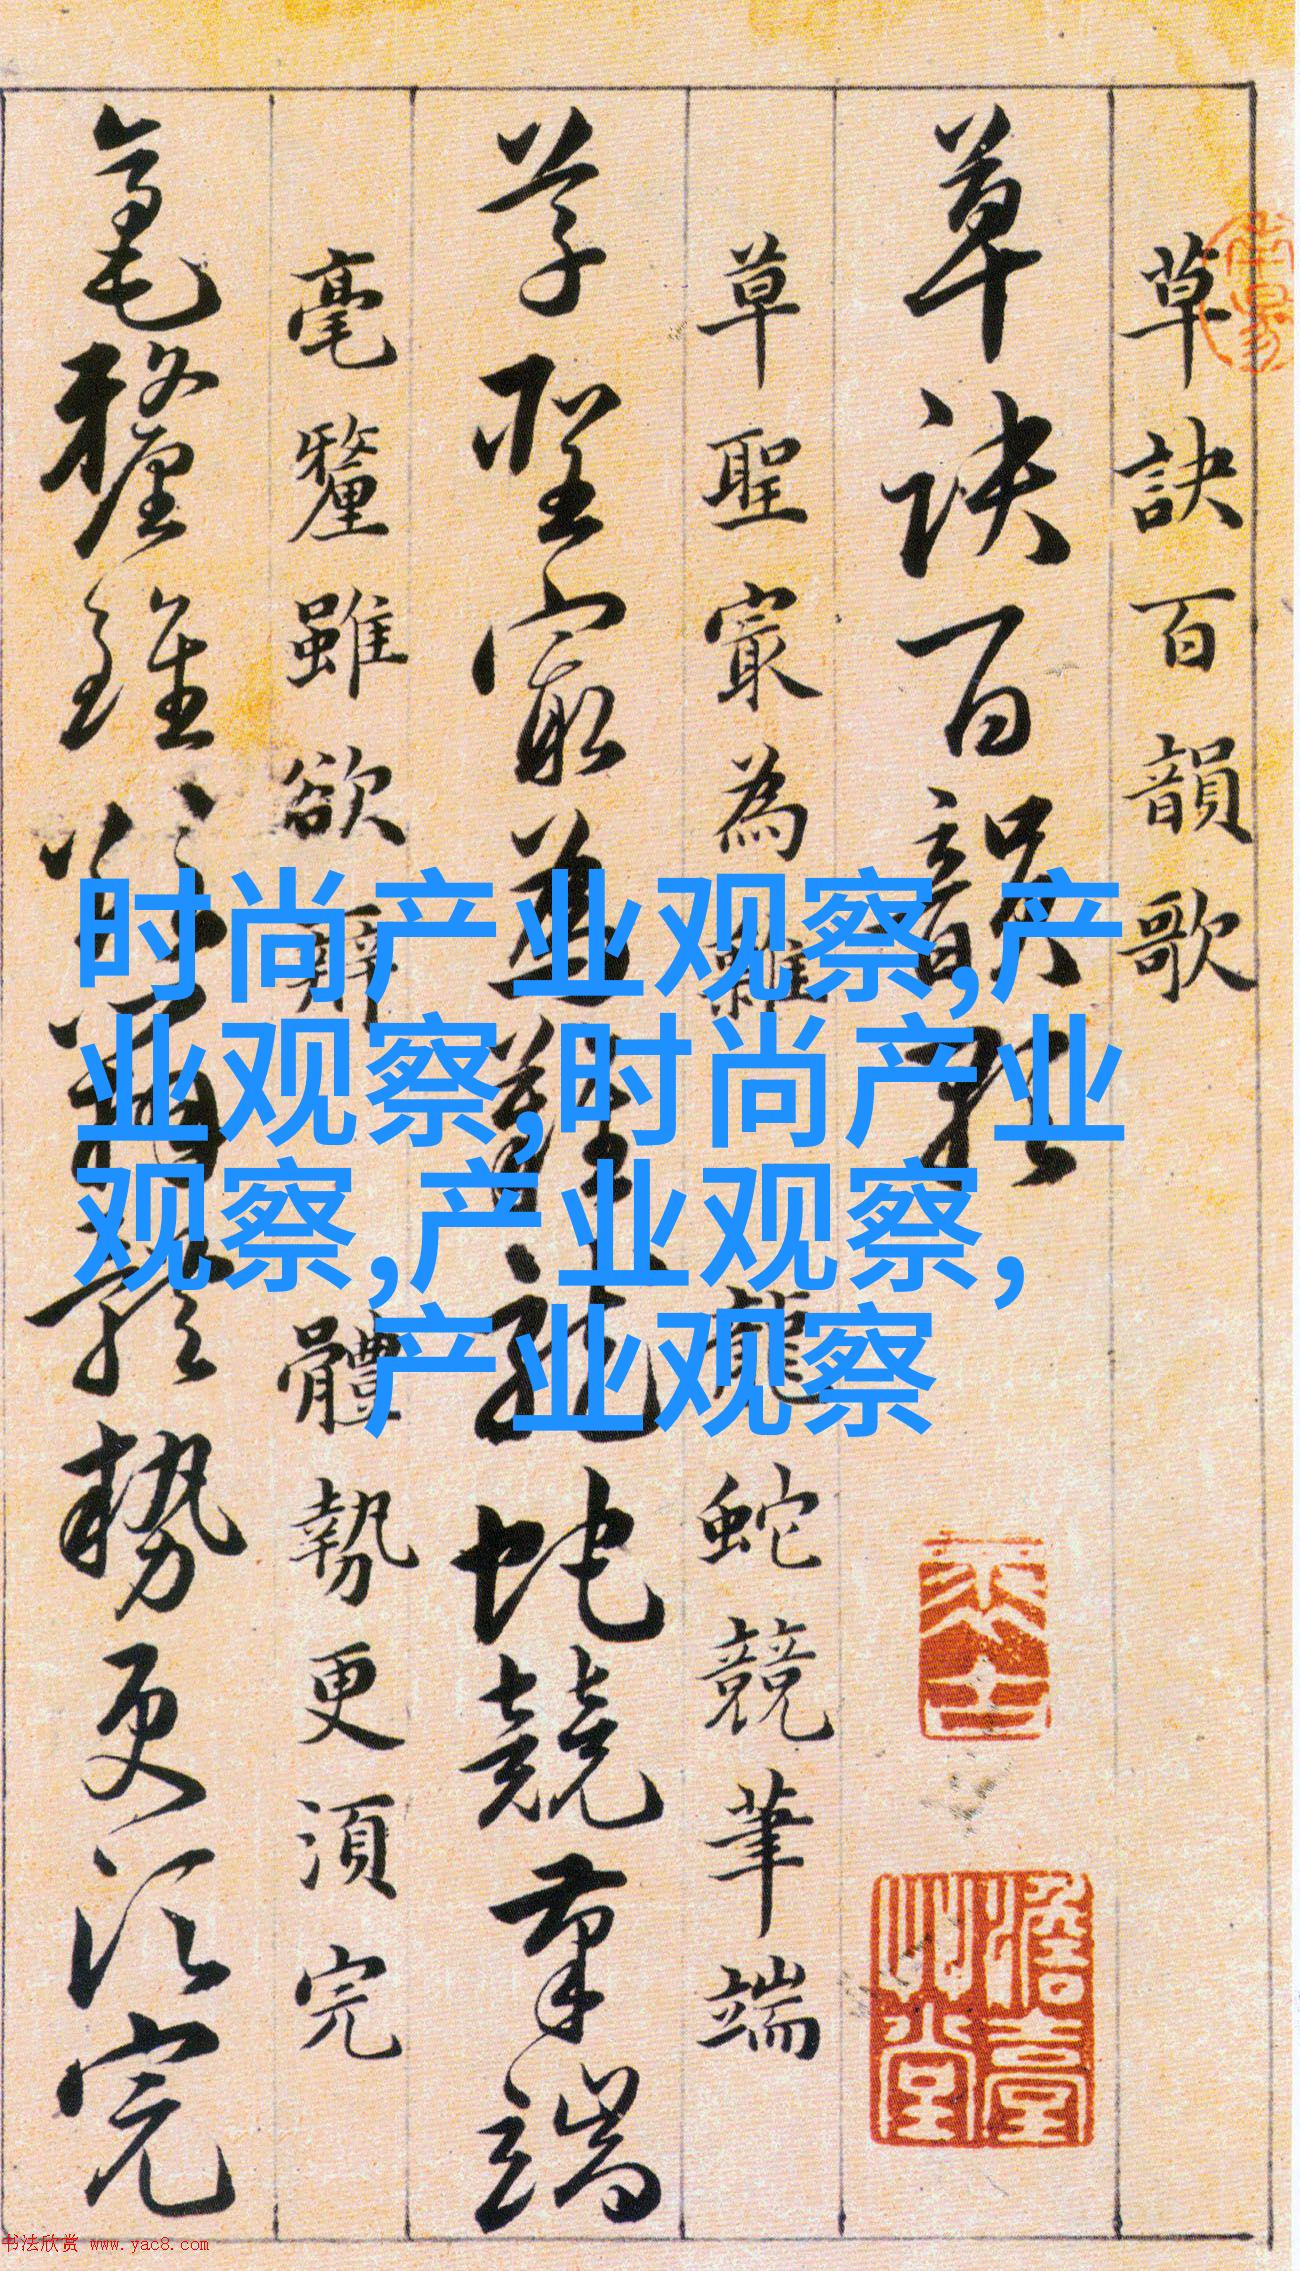 草訣百韻歌
草訣百韻歌
草聖㝡為難 龍蛇競筆端
草聖㝡為難龍蛇競筆端
毫釐雖欲辨 體勢更須完
毫釐雖欲辨體勢更須完
时尚产业观察,产
业观察,时尚产业
观察,产业观察,
产业观察
书法欣赏 www.yac8.com